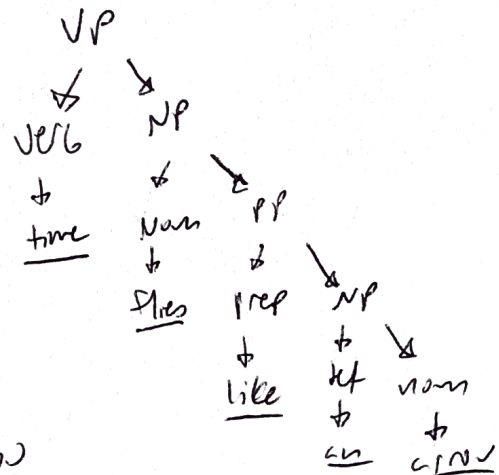 VP
verb NP
time Noun PP
flies prep NP
like det noun
an arrow